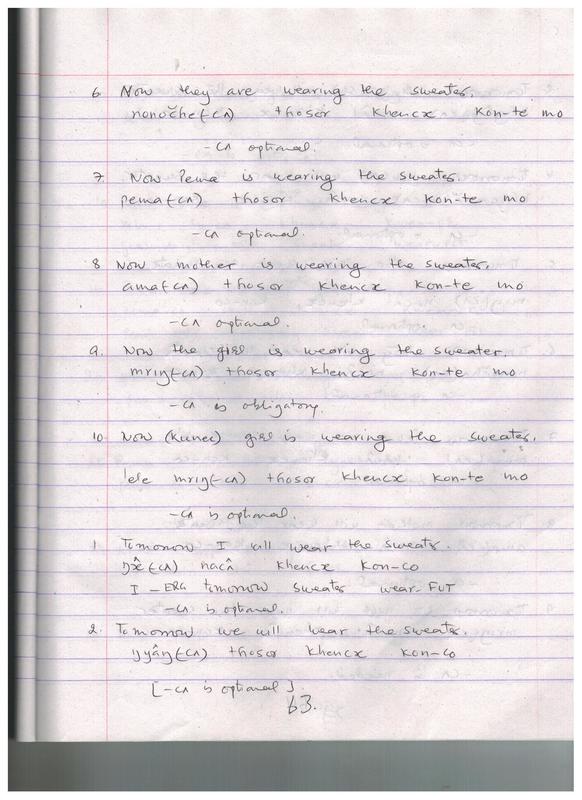 6. Now they are wearing the sweater.
nonoc̆he(-cʌ) thosor khencx kon-te mo
-cʌ optional.
7. Now Pema is wearing the sweater.
pema(-cʌ) thosor khencx kon-te mo
-cʌ optional.
8 Now mother is wearing the sweater.
ama(-cʌ) thosor khencx kon-te mo
-cʌ optional.
9. Now the girl is wearing the sweater.
mriŋ(-cʌ) thosor khencx kon-te mo
-cʌ is obligatory.
10 Now (kunec) girl is wearing the sweater.
mriŋ(-cʌ) thosor khencx kon-te mo
-cʌ is optional.
1. Tomorrow I will wear the sweater.
ŋx̂(-cʌ) nacʌ̂ khencx kon-co
I -ERG tomorrow sweater wear-FUT
-cʌ is optional.
2. Tomorrow we will wear the sweater.
ŋyâŋ(-cʌ) thosor khencx kon-co
[-cʌ is optional]
63.